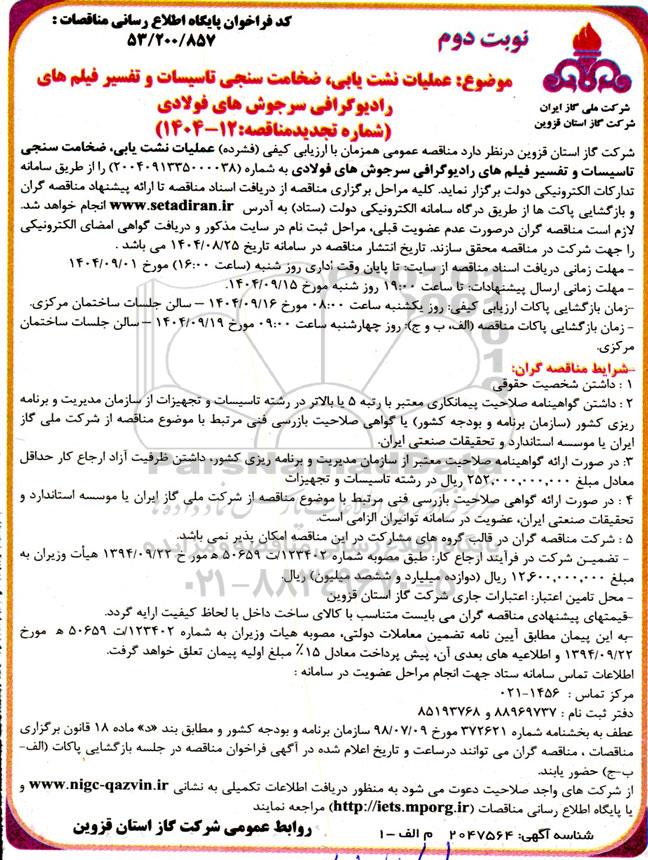 کد فراخوان پایگاه اطلاع رسانی مناقصات :
۵۳/۲۰۰/۸۵۷
نوبت دوم
شرکت ملی گاز ایران
شرکت گاز استان قزوین
موضوع: عملیات نشت یابی، ضخامت سنجی تاسیسات و تفسیر فیلم های
رادیوگرافی سرجوش های فولادی
(شماره تجدیدمناقصه:۱۲-۱۴۰۴)
شرکت گاز استان قزوین درنظر دارد مناقصه عمومی همزمان با ارزیابی کیفی (فشرده) عملیات نشت یابی، ضخامت سنجی
تاسیسات و تفسیر فیلم های رادیوگرافی سرجوش های فولادی به شماره (۲۰۰۴۰۹۱۳۳۵۰۰۰۰۳۸) را از طریق سامانه
تدارکات الکترونیکی دولت برگزار نماید. کلیه مراحل برگزاری مناقصه از دریافت اسناد مناقصه تا ارائه پیشنهاد مناقصه گران
و بازگشایی پاکت ها از طریق درگاه سامانه الکترونیکی دولت (ستاد) به آدرس www.setadiran.ir انجام خواهد شد.
لازم است مناقصه گران درصورت عدم عضویت قبلی، مراحل ثبت نام در سایت مذکور و دریافت گواهی امضای الکترونیکی
را جهت شرکت در مناقصه محقق سازند. تاریخ انتشار مناقصه در سامانه تاریخ ۱۴۰۴/۰۸/۲۵ می باشد .
- مهلت زمانی دریافت اسناد مناقصه از سایت: تا پایان وقت اداری روز شنبه (ساعت ۱۶:۰۰) مورخ ۱۴۰۴/۰۹/۰۱
- مهلت زمانی ارسال پیشنهادات: تا ساعت ۱۹:۰۰ روز شنبه مورخ ۱۴۰۴/۰۹/۱۵.
-زمان بازگشایی پاکات ارزیابی کیفی: روز یکشنبه ساعت ۰۸:۰۰ مورخ ۱۴۰۴/۰۹/۱۶ – سالن جلسات ساختمان مرکزی.
- زمان بازگشایی پاکات مناقصه (الف، ب و ج): روز چهارشنبه ساعت ۰۹:۰۰ مورخ ۱۴۰۴/۰۹/۱۹ – سالن جلسات ساختمان
مرکزی.
-شرایط مناقصه گران:
۱ : داشتن شخصیت حقوقی
۲ : داشتن گواهینامه صلاحیت پیمانکاری معتبر با رتبه ۵ یا بالاتر در رشته تاسیسات و تجهیزات از سازمان مدیریت و برنامه
ریزی کشور (سازمان برنامه و بودجه کشور) یا گواهی صلاحیت بازرسی فنی مرتبط با موضوع مناقصه از شرکت ملی گاز
ایران یا موسسه استاندارد و تحقیقات صنعتی ایران.
۳: در صورت ارائه گواهینامه صلاحیت معتبر از سازمان مدیریت و برنامه ریزی کشور، داشتن ظرفیت آزاد ارجاع کار حداقل
معادل مبلغ ۲۵۲,۰۰۰,۰۰۰,۰۰۰ ریال در رشته تاسیسات و تجهیزات
۴ : در صورت ارائه گواهی صلاحیت بازرسی فنی مرتبط با موضوع مناقصه از شرکت ملی گاز ایران یا موسسه استاندارد و
تحقیقات صنعتی ایران، عضویت در سامانه توانیران الزامی است.
۵ : شرکت مناقصه گران در قالب گروه های مشارکت در این مناقصه امکان پذیر نمی باشد.
- تضمین شرکت در فرآیند ارجاع کار: طبق مصوبه شماره ۱۲۳۴۰۲/ت ۵۰۶۵۹ ه مورخ ۱۳۹۴/۰۹/۲۲ هیأت وزیران به
مبلغ ۱۲,۶۰۰,۰۰۰,۰۰۰ ریال (دوازده میلیارد و ششصد میلیون) ریال.
- محل تامین اعتبار: اعتبارات جاری شرکت گاز استان قزوین
-قیمتهای پیشنهادی مناقصه گران می بایست متناسب با کالای ساخت داخل با لحاظ کیفیت ارایه گردد.
-به این پیمان مطابق آیین نامه تضمین معاملات دولتی، مصوبه هیات وزیران به شماره ۱۲۳۴۰۲/ت ۵۰۶۵۹ ه مورخ
۱۳۹۴/۰۹/۲۲ و اطلاعیه های بعدی آن، پیش پرداخت معادل ۱۵٪ مبلغ اولیه پیمان تعلق خواهد گرفت.
اطلاعات تماس سامانه ستاد جهت انجام مراحل عضویت در سامانه :
مرکز تماس : ۱۴۵۶-۰۲۱
دفتر ثبت نام : ۸۸۹۶۹۷۳۷ و ۸۵۱۹۳۷۶۸
عطف به بخشنامه شماره ۳۷۲۶۲۱ مورخ ۹۸/۰۷/۰۹ سازمان برنامه و بودجه کشور و مطابق بند «د» ماده ۱۸ قانون برگزاری
مناقصات ، مناقصه گران می توانند درساعت و تاریخ اعلام شده در آگهی فراخوان مناقصه در جلسه بازگشایی پاکات (الف-
ب-ج) حضور یابند.
از شرکت های واجد صلاحیت دعوت می شود به منظور دریافت اطلاعات تکمیلی به نشانی www.nigc-qazvin.ir و
یا پایگاه اطلاع رسانی مناقصات (http://iets.mporg.ir) مراجعه نمایند
شناسه آگهی: ۲۰۴۷۵۶۴ م الف-۱
روابط عمومی شرکت گاز استان قزوین